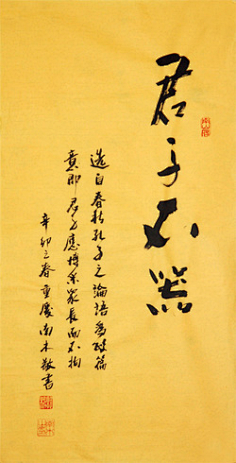 君子不器
选自春秋孔子之論語為政篇
意即君子應博采众長而不拘
辛卯之春重慶南木敬書